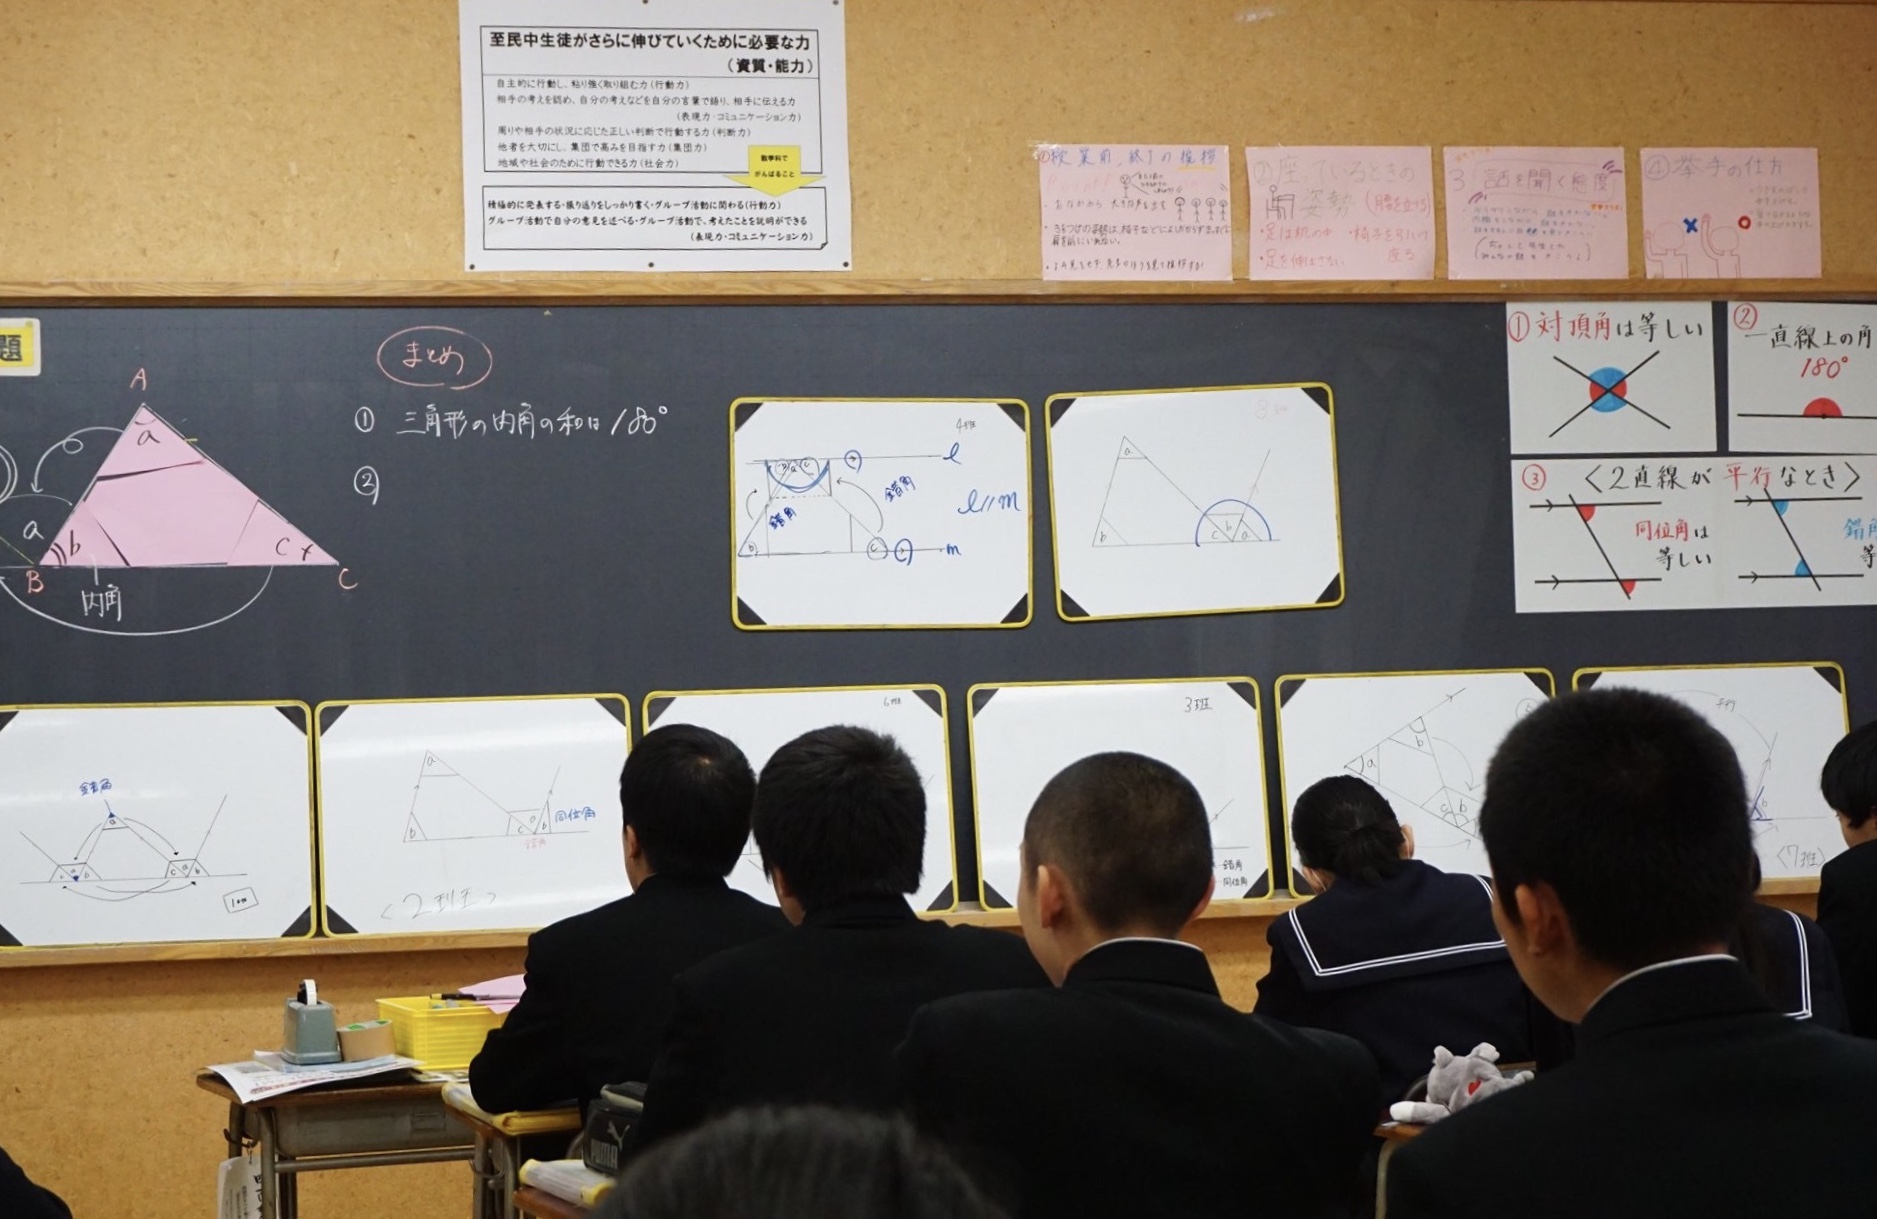 至民中生徒がさらに伸びていくために必要な力
（資質・能力）
自主的に行動し、粘り強く取り組む力（行動力）
相手の考えを認め、自分の考えなどを自分の言葉で語り、相手に伝える力
（表現力・コミュニケーション力）
周りや相手の状況に応じた正しい判断で行動する力（判断力）
他者を大切にし、集団で高みを目指す力（集団力）
地域や社会のために行動できる力（社会力）
数学科で
がんばること
積極的に発表する・振り返りをしっかり書く・グループ活動に関わる（行動力）
グループ活動で自分の意見を述べる・グループ活動で、考えたことを説明ができる
（表現力・コミュニケーション力）
①授業前、終了の挨拶
おなかから 大きな声を出す
②座っているときの
姿勢（腰を立てる）
・足は机の中
・椅子を引いて
座る
・足を伸ばさない
3 話を聞く態度
④挙手の仕方
題
まとめ
① 三角形の内角の和は180°
②
A
a
b
c
a
B
C
内角
4班
l
錯角
錯角
l//m
m
a
b
c
b
a
①対頂角は等しい
②
一直線上の角
180°
③〈2直線が平行なとき〉
同位角は
等しい
錯角
等
錯角
a
c
a
b
c
a
b
1班
a
b
c
a
b
同位角
錯角
〈2班〉
6班
3班
錯角
同位角
a
b
c
b
平行
〈7班〉
PUMA